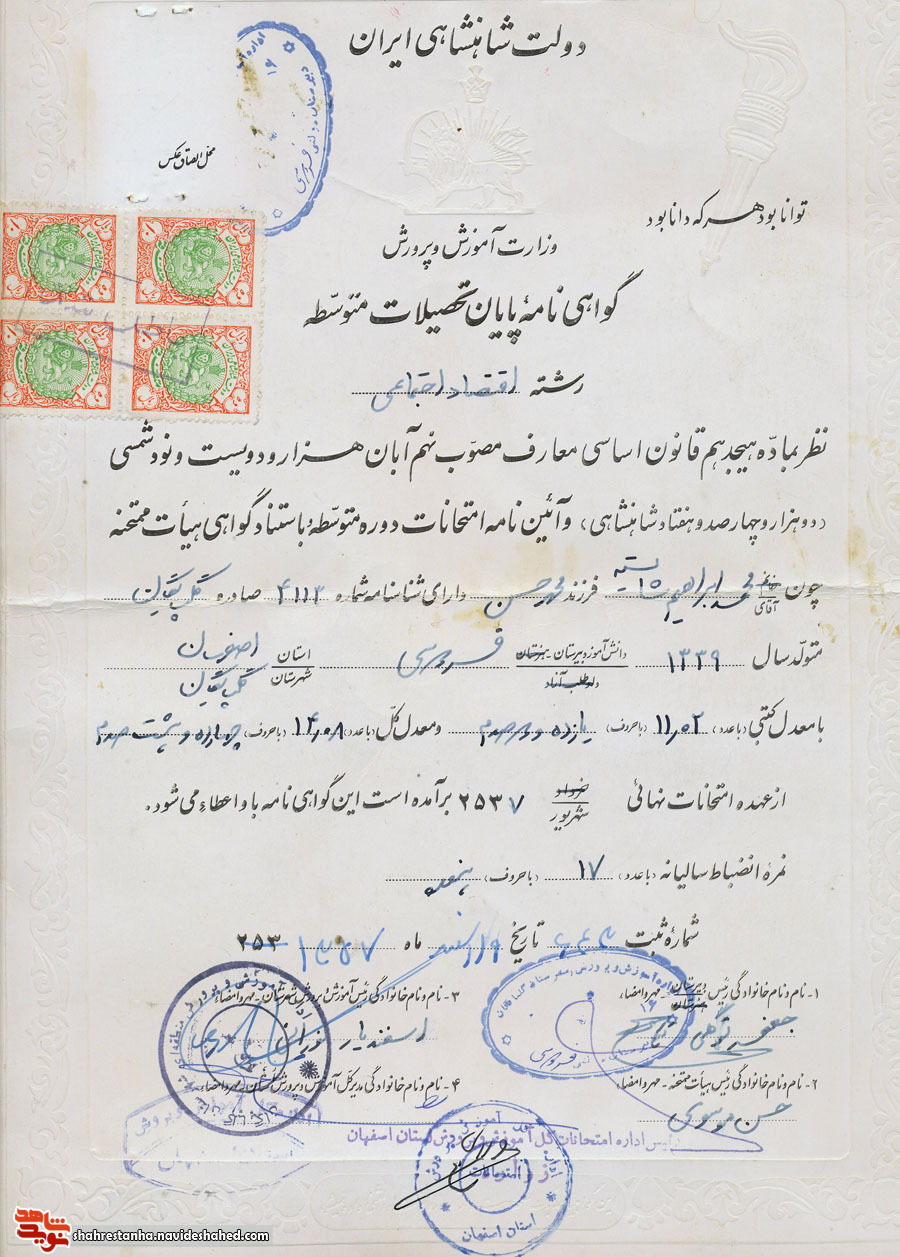 دولت شاهنشاهی ایران
محل الصاق عکس
توانا بود هر که دانا بود
وزارت آموزش و پرورش
گواهی نامهٔ پایان تحصیلات متوسّطه
رشته اقتصاد اجتماعی
نظر بمادّه هیجدهم قانون اساسی معارف مصوّب نهم آبان هزار و دویست و نود شمسی
(دو هزار و چهارصد و هفتاد شاهنشاهی) و آئین نامه امتحانات دوره متوسّطه و با استناد گواهی هیأت ممتحنه
چون خانم آقای محمد ابراهیم شایسته فرزند محمد حسن دارای شناسنامه شماره ۴۱۱۳ صادره گلپایگان
متولّد سال ۱۳۳۹ دانش آموز دبیرستان - هنرستان داوطلب آزاد فردوسی استان اصفهان شهرستان گلپایگان
با معدل کتبی (با عدد) ۱۱٫۰۲ (با حروف) یازده و دو صدم و معدل کلّ (با عدد) ۱۴٫۰۸ (با حروف) چهارده و هشت صدم
از عهده امتحانات نهائی خرداد شهریور ۲۵۳۷ برآمده است این گواهی نامه باو اعطاء می شود.
نمرهٔ انضباط سالیانه (با عدد) ۱۷ (با حروف) هفده
شمارهٔ ثبت تاریخ اسفند ماه ۲۵۳ ۱۳۵۷
۱- نام و نام خانوادگی رئیس دبیرستان هنرستان - مهر و امضاء
۳- نام و نام خانوادگی رئیس آموزش و پرورش شهرستان - مهر و امضاء
جعفر
اسفندیار
۲- نام و نام خانوادگی رئیس هیأت ممتحنه - مهر و امضاء
۴- نام و نام خانوادگی مدیر کل آموزش و پرورش استان - مهر و امضاء
حسن موسوی
رئیس اداره امتحانات کل آموزش و پرورش استان اصفهان
استان اصفهان
شاهد
نوید
shahrestanha.navideshahed.com